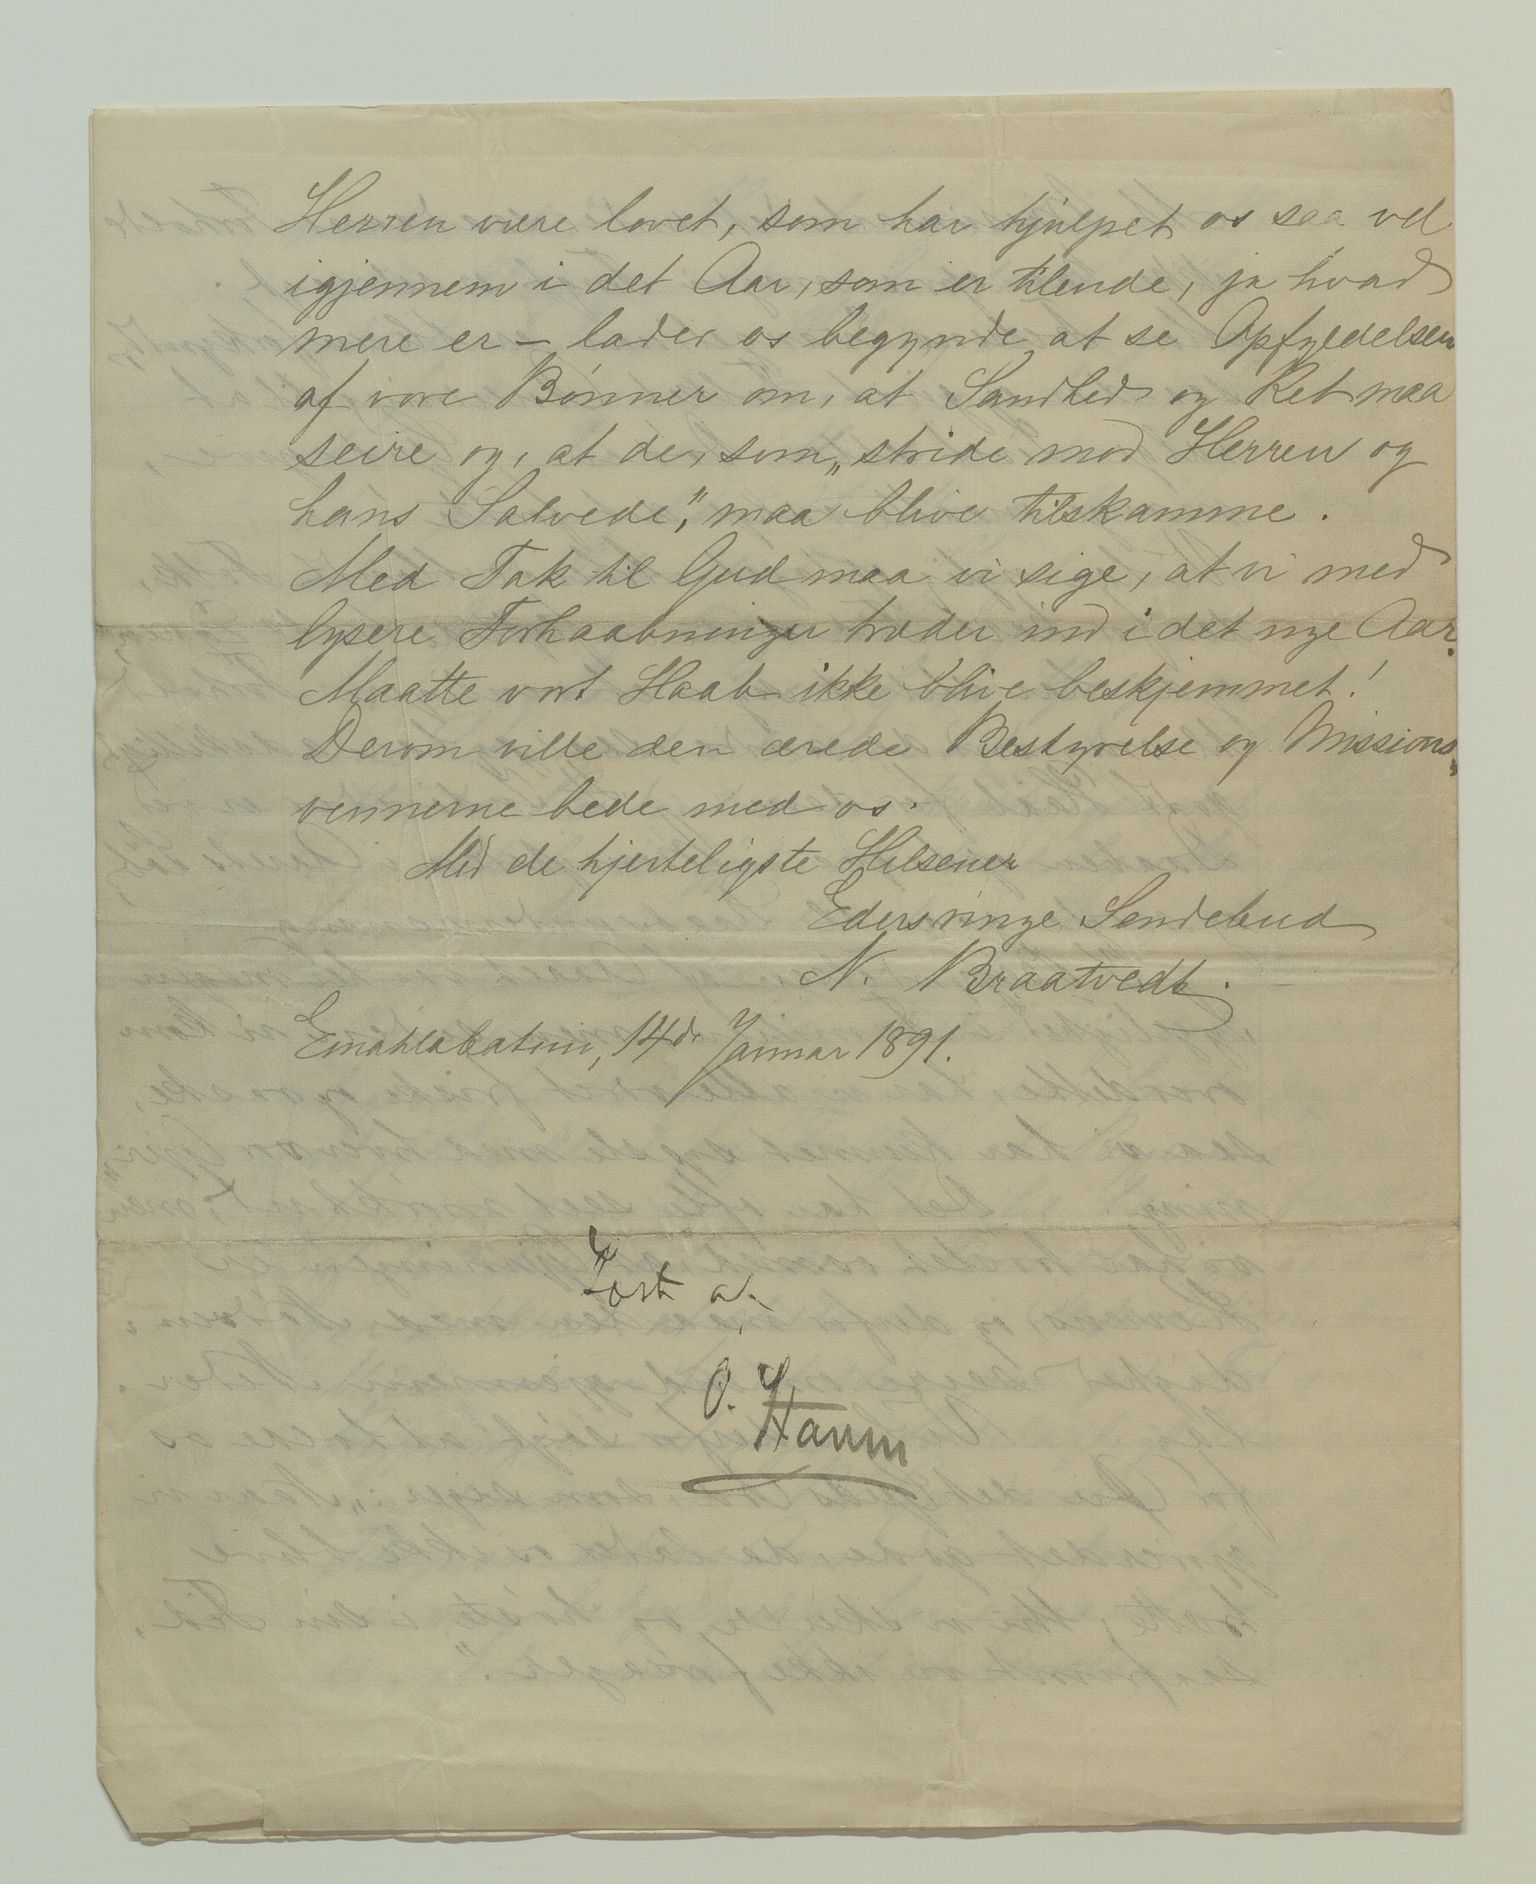 Herren være lovet, som har hjulpet os saa vel
igjennem i det Aar, som er tilende, ja hvad
mere er – lader os begynde at se Opfyldelsen
af vore Bønner om, at Sandhed og Ret maa
seire og, at de, som „stride mod Herren og
hans Salvede“, maa blive tilskamme.
Med Tak til Gud maa vi sige, at vi med
lysere Forhaabninger træder ind i det nye Aar.
Maatte vort Haab ikke blive beskjemmet!
Derom ville den ærede Bestyrelse og Missions„
vennerne bede med os.
Med de hjerteligste Hilsener
Eders ringe Sendebud
N. Braatvedt.
Emahlabatini, 14de Januar 1891.
Læst a.
O. Stavem